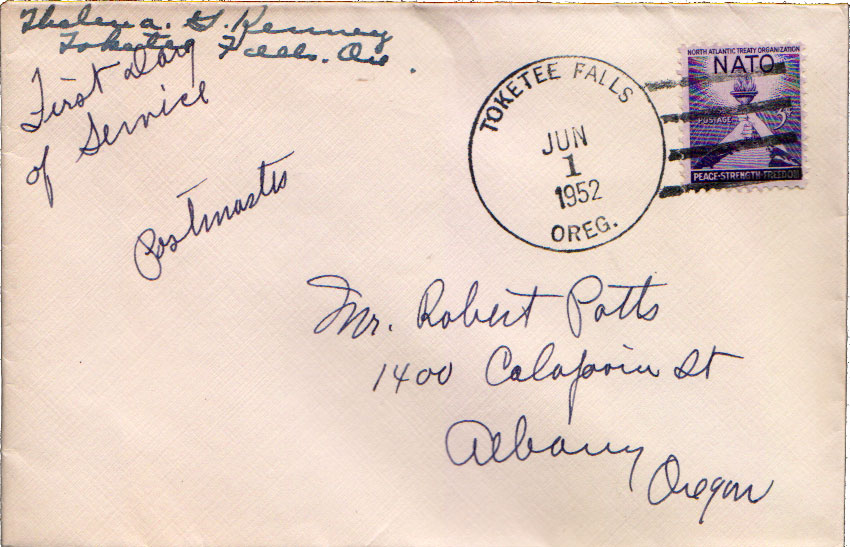 Thelma. G. Kenney
Toketee Falls. Ore.
First Day
of Service
Postmaster
TOKETEE FALLS
JUN
1
1952
OREG.
NORTH ATLANTIC TREATY ORGANIZATION
NATO
POSTAGE 3¢
PEACE-STRENGTH-FREEDOM
Mr. Robert Potts
1400 Calapooia St
Albany
Oregon